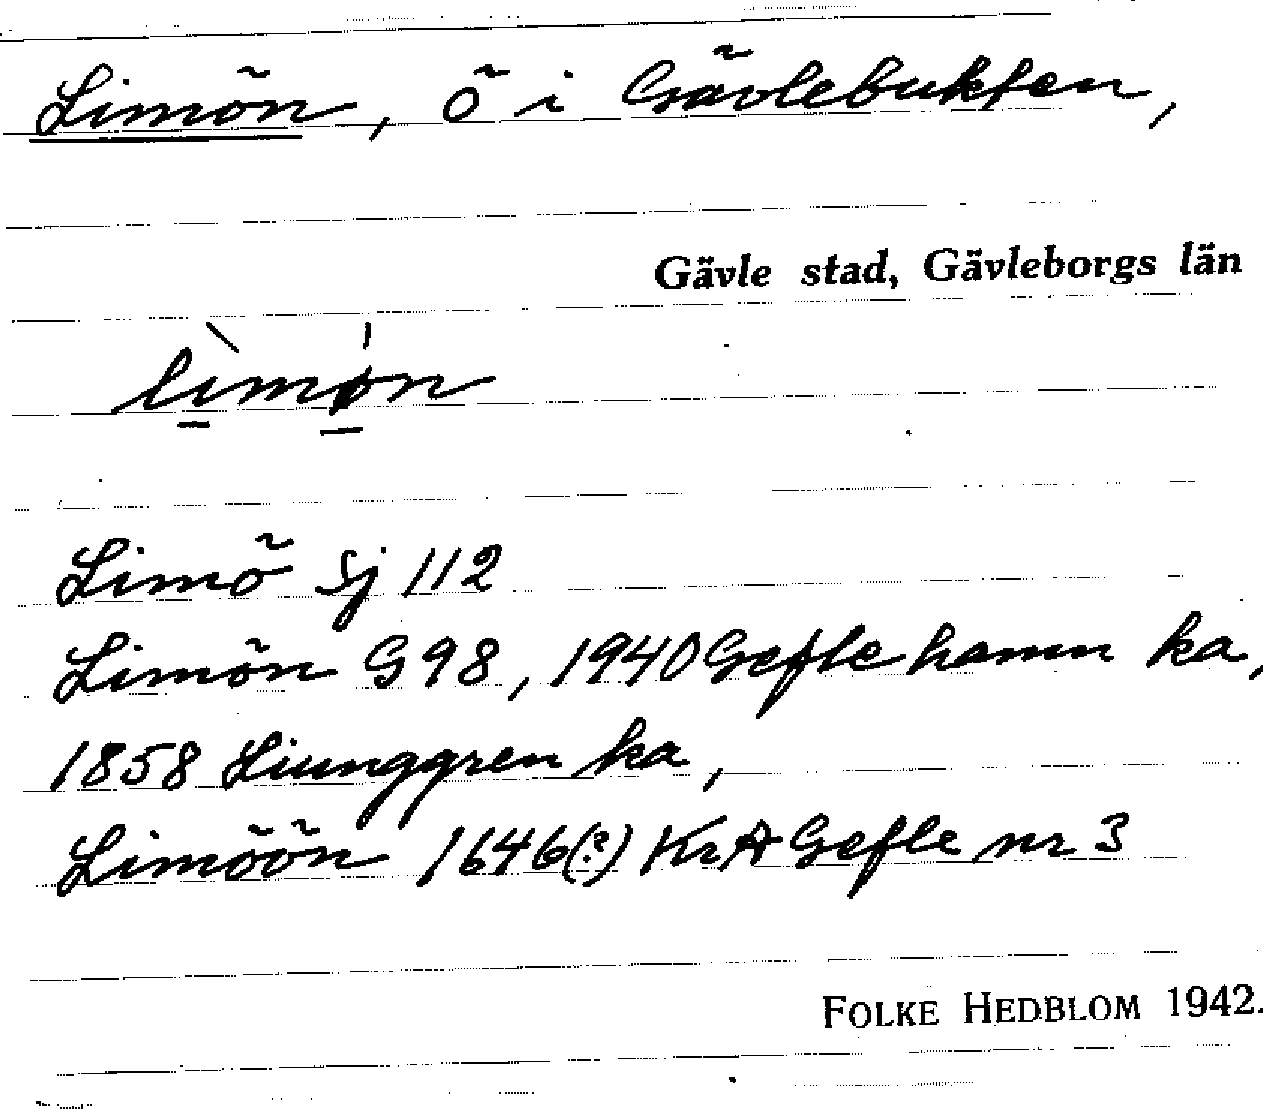 Limön, ö i Gävlebukten,
Gävle stad, Gävleborgs län
lìmøn
Limö Sj 112
Limön G 98, 1940 Gefle hamn ka,
1858 Ljunggren ka,
Limöön 1646(?) KrA Gefle nr 3
FOLKE HEDBLOM 1942.